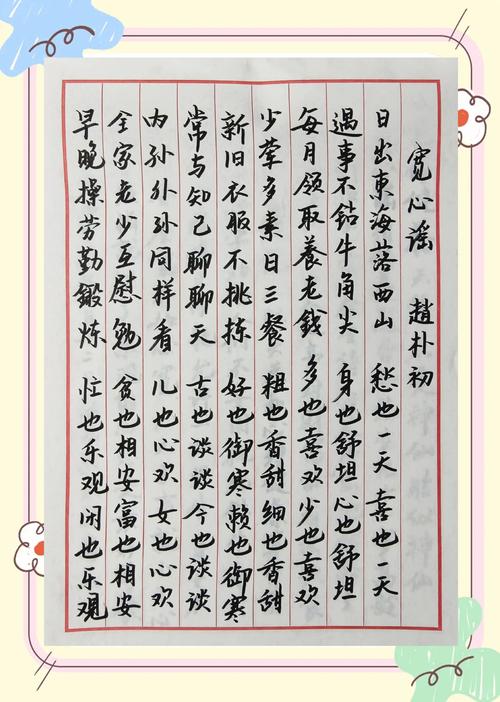 寛心谣　趙朴初
日出東海落西山　愁也一天喜也一天
遇事不钻牛角尖　身也舒坦心也舒坦
每月领取養老錢　多也喜欢少也喜欢
少荤多素日三餐　粗也香甜细也香甜
新旧衣服不挑拣　好也御寒赖也御寒
常与知己聊聊天　古也谈谈今也谈谈
内孙外孙同样看　儿也心欢女也心欢
全家老少互慰勉　贫也相安富也相安
早晚操劳勤鍛炼　忙也乐观闲也乐观